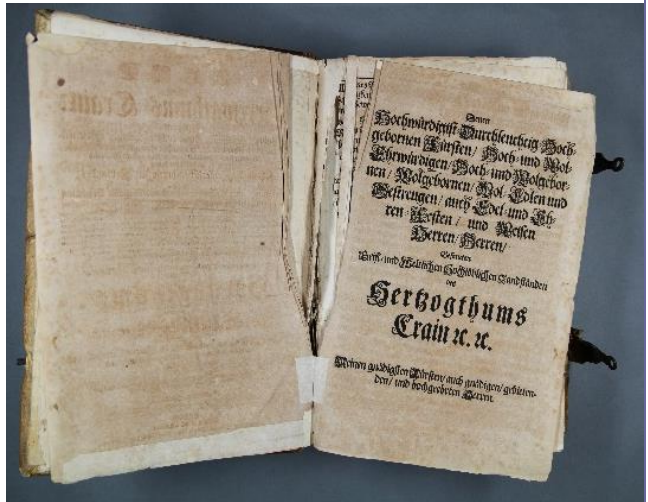 Denen
Hochwürdigist-Durchleuchtig-Hoch-
gebornen Fürsten/ Hoch- und Wol-
Ehrwürdigen/ Hoch- und Wolgebor-
nen/ Wolgebornen/ Wol-Edlen und
Gestrengen/ auch Edel- und Eh-
ren-Vesten/ und Weisen
Herren/ Herren/
Gesamten
Geist- und Weltlichen Hochlöblichen Landständen
des
Hertzogthums
Crain ꝛc. ꝛc.
Meinen gnädigsten Fürsten/ auch gnädigen/ gebieten-
den/ und hochgeehrten Herren.